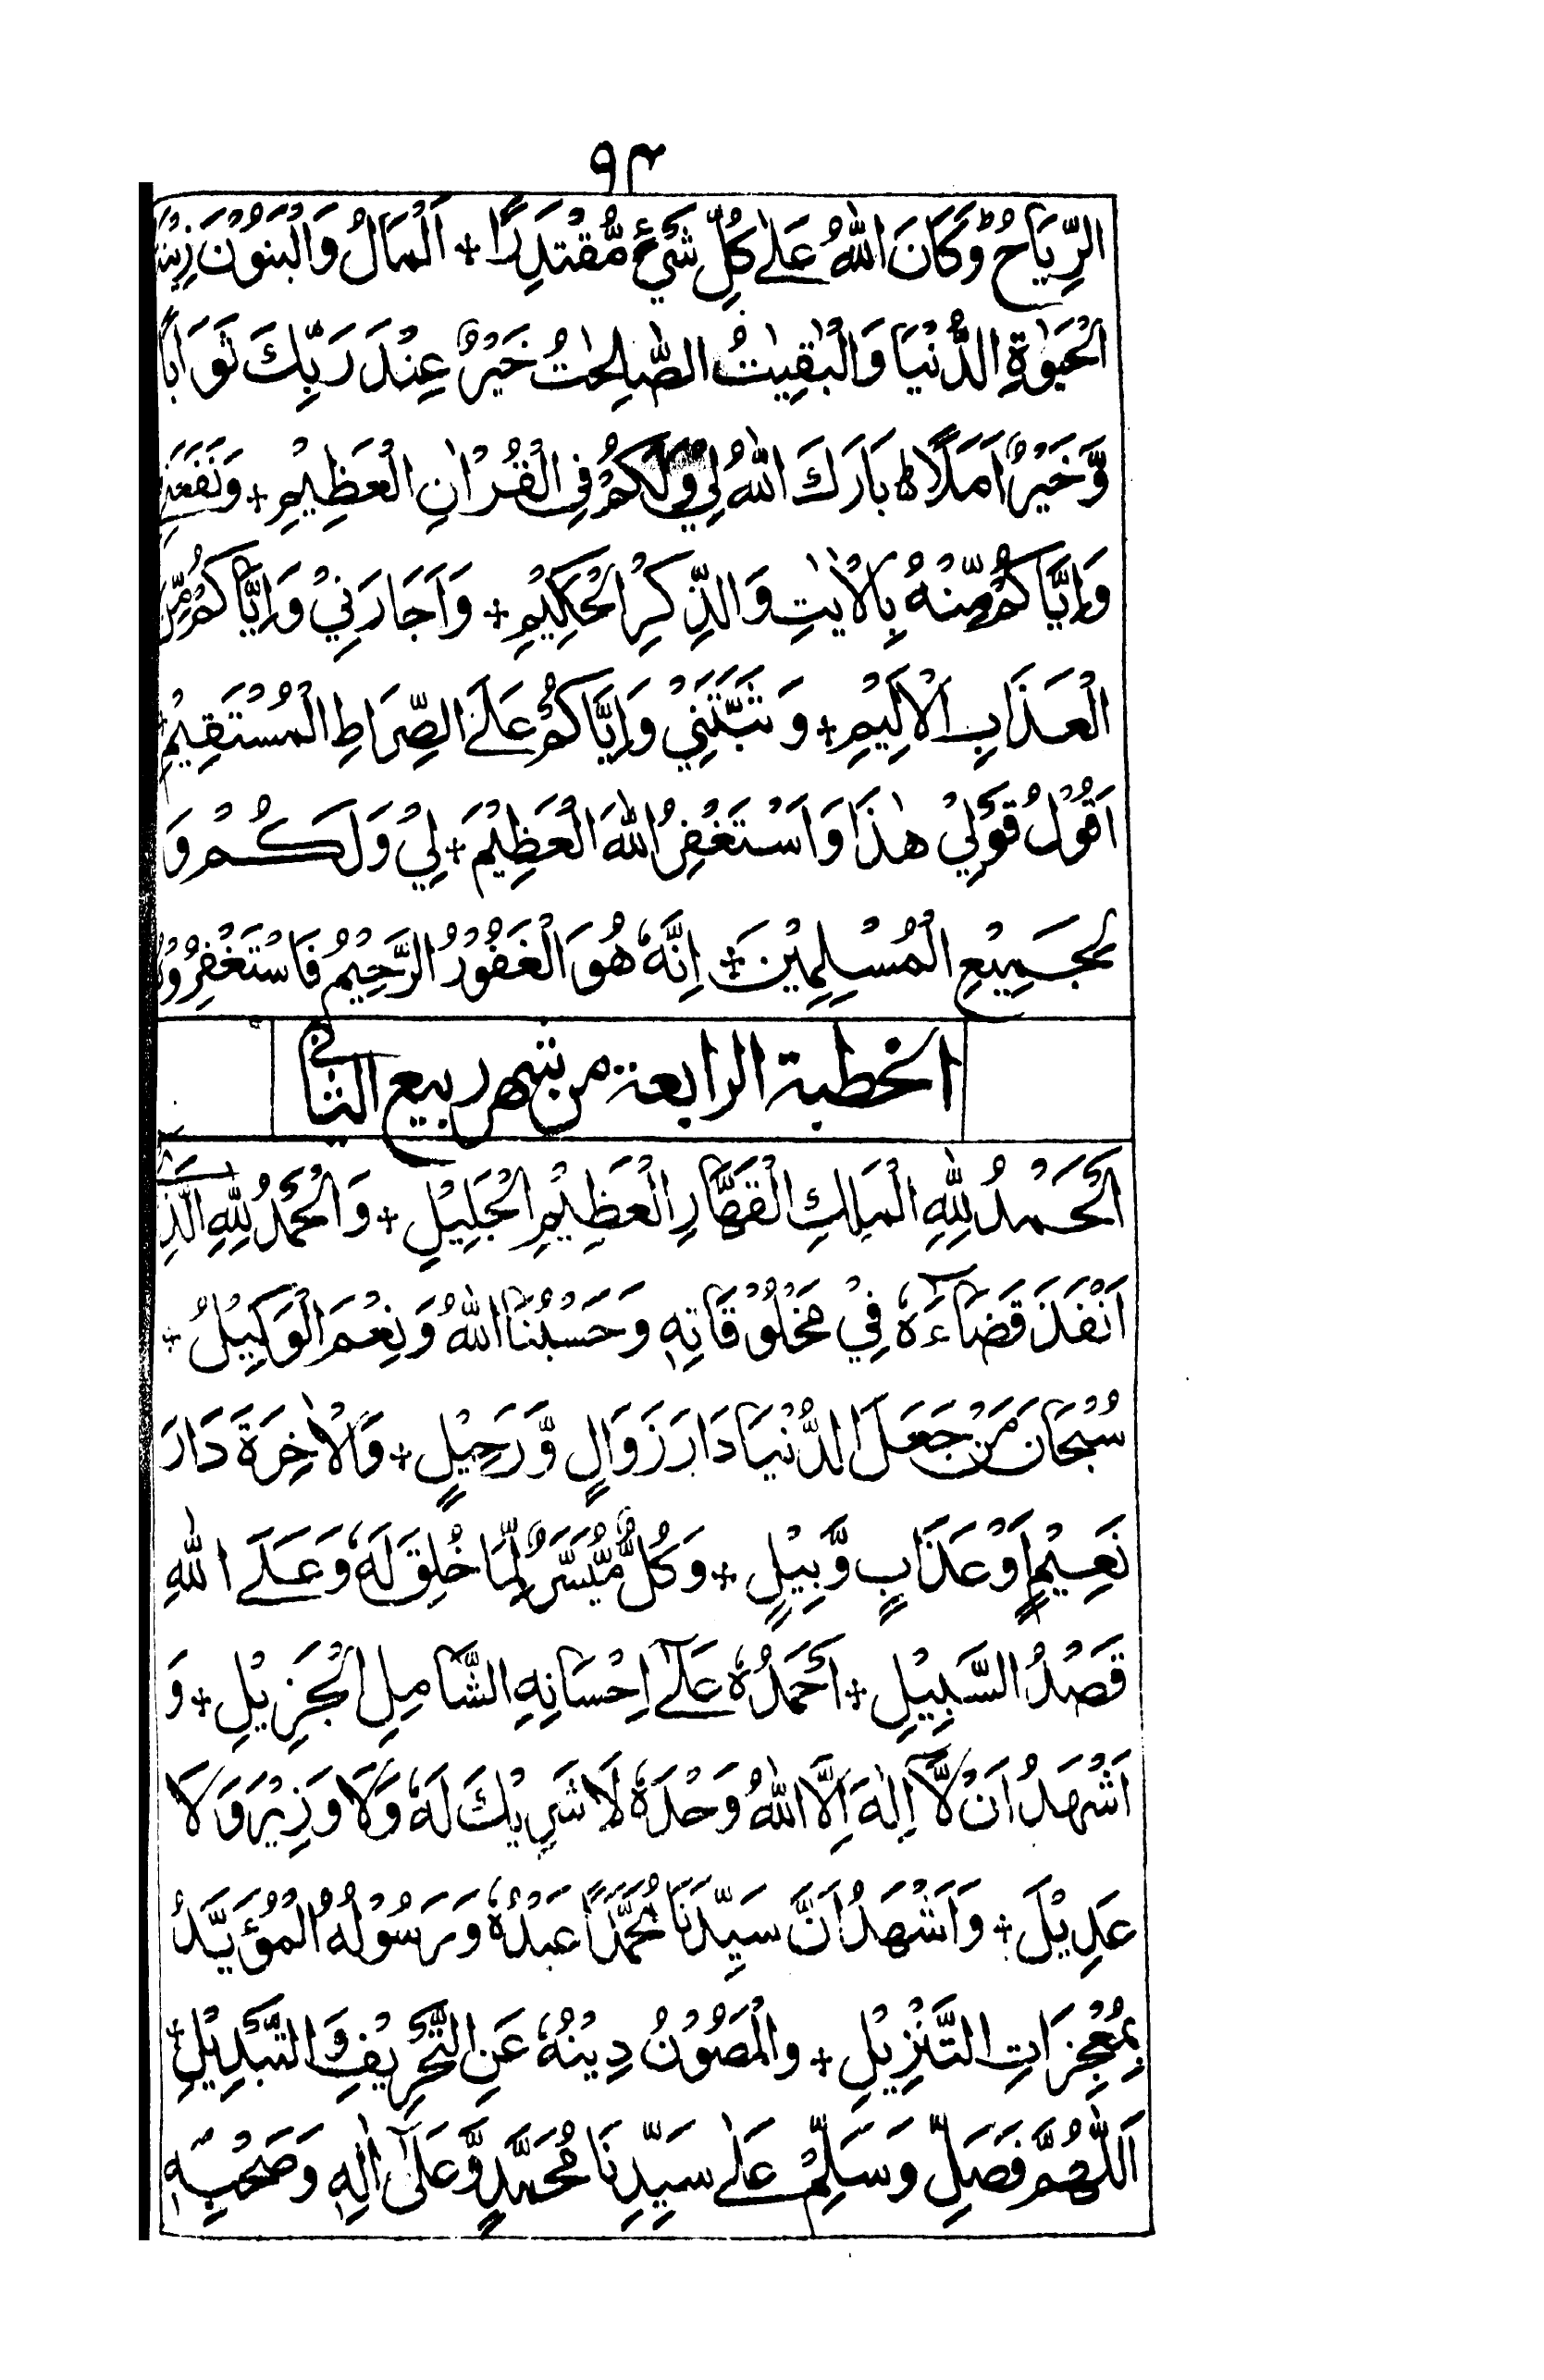 ۹۴
الرِّيَاحُ وَكَانَ اللهُ عَلٰى كُلِّ شَيْءٍ مُّقْتَدِرًا + اَلْمَالُ وَالْبَنُوْنَ زِيْنَةُ
الْحَيٰوةِ الدُّنْيَا وَالْبٰقِيٰتُ الصّٰلِحٰتُ خَيْرٌ عِنْدَ رَبِّكَ ثَوَابًا
وَّخَيْرٌ اَمَلًا ط بَارَكَ اللهُ لِيْ وَلَكُمْ فِي الْقُرْاٰنِ الْعَظِيْمِ + وَنَفَعَنِيْ
وَاِيَّاكُمْ مِّنْهُ بِالْاٰيٰتِ وَالذِّكْرِ الْحَكِيْمِ + وَاَجَارَنِيْ وَاِيَّاكُمْ مِّنَ
الْعَذَابِ الْاَلِيْمِ + وَثَبَّتَنِيْ وَاِيَّاكُمْ عَلَى الصِّرَاطِ الْمُسْتَقِيْمِ
اَقُوْلُ قَوْلِيْ هٰذَا وَاَسْتَغْفِرُ اللهَ الْعَظِيْمَ + لِيْ وَلَكُمْ وَ
لِجَمِيْعِ الْمُسْلِمِيْنَ + اِنَّهٗ هُوَ الْغَفُوْرُ الرَّحِيْمُ فَاسْتَغْفِرُوْهُ
الخطبة الرابعة من شهر ربيع الثاني
اَلْحَمْدُ لِلّٰهِ الْمَلِكِ الْقَهَّارِ الْعَظِيْمِ الْجَلِيْلِ + وَالْحَمْدُ لِلّٰهِ الَّذِيْ
اَنْفَذَ قَضَاءَهٗ فِيْ مَخْلُوْقَاتِهٖ وَحَسْبُنَا اللهُ وَنِعْمَ الْوَكِيْلُ +
سُبْحَانَ مَنْ جَعَلَ الدُّنْيَا دَارَ زَوَالٍ وَّرَحِيْلٍ + وَالْاٰخِرَةَ دَارَ
نَعِيْمٍ اَوْ عَذَابٍ وَّبِيْلٍ + وَكُلٌّ مُّيَسَّرٌ لِّمَا خُلِقَ لَهٗ وَعَلَى اللهِ
قَصْدُ السَّبِيْلِ + اَحْمَدُهٗ عَلٰى اِحْسَانِهِ الشَّامِلِ الْجَزِيْلِ + وَ
اَشْهَدُ اَنْ لَّا اِلٰهَ اِلَّا اللهُ وَحْدَهٗ لَا شَرِيْكَ لَهٗ وَلَا وَزِيْرَ وَلَا
عَدِيْلَ + وَاَشْهَدُ اَنَّ سَيِّدَنَا مُحَمَّدًا عَبْدُهٗ وَرَسُوْلُهُ الْمُؤَيَّدُ
بِمُعْجِزَاتِ التَّنْزِيْلِ + وَالْمَصُوْنُ دِيْنُهٗ عَنِ التَّحْرِيْفِ وَالتَّبْدِيْلِ +
اَللّٰهُمَّ فَصَلِّ وَسَلِّمْ عَلٰى سَيِّدِنَا مُحَمَّدٍ وَّعَلٰى اٰلِهٖ وَصَحْبِهٖ